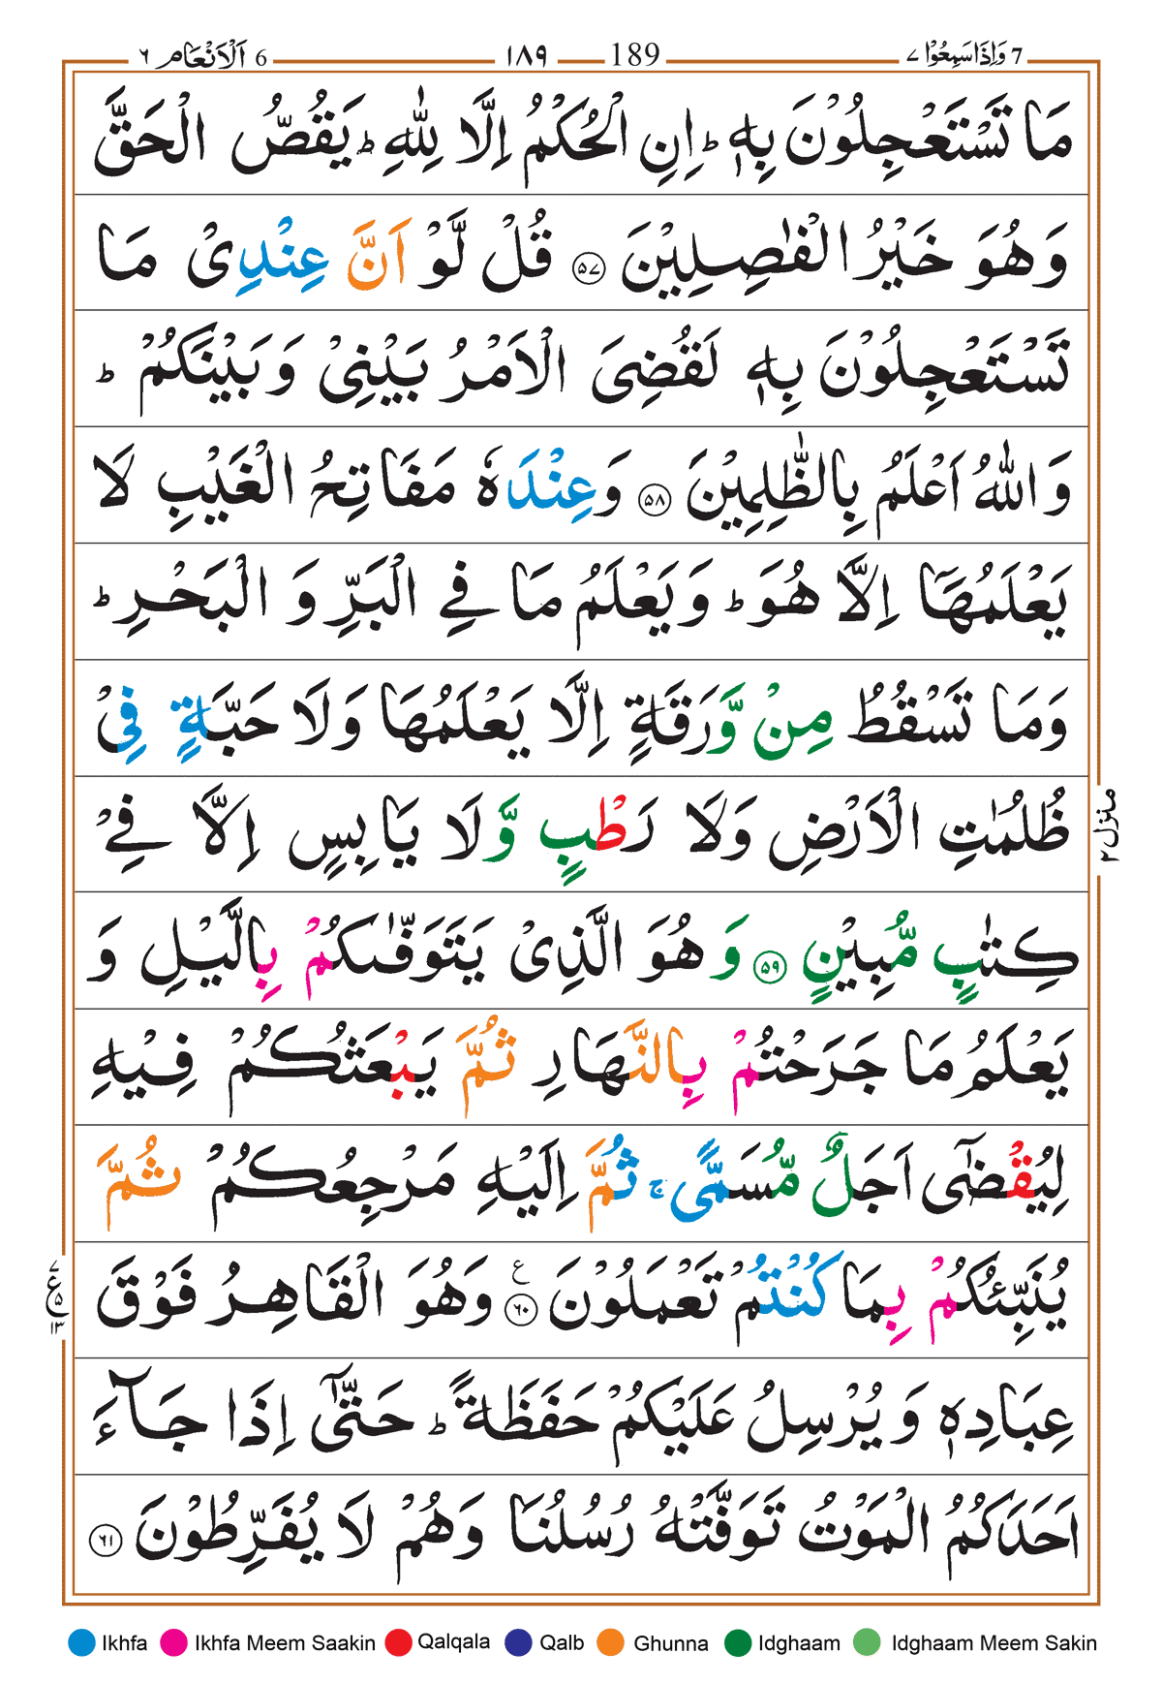 7 وَاِذَاسَمِعُوْا ٧ 189 ١٨٩ 6 اَلْاَنْعَام ٦
مَا تَسْتَعْجِلُوْنَ بِهٖ ؕ اِنِ الْحُكْمُ اِلَّا لِلّٰهِ ؕ يَقُصُّ الْحَقَّ
وَهُوَ خَيْرُ الْفٰصِلِيْنَ ﴿۵۷﴾ قُلْ لَّوْ اَنَّ عِنْدِىْ مَا
تَسْتَعْجِلُوْنَ بِهٖ لَقُضِىَ الْاَمْرُ بَيْنِىْ وَبَيْنَكُمْ ؕ
وَاللّٰهُ اَعْلَمُ بِالظّٰلِمِيْنَ ﴿۵۸﴾ وَعِنْدَهٗ مَفَاتِحُ الْغَيْبِ لَا
يَعْلَمُهَاۤ اِلَّا هُوَ ؕ وَيَعْلَمُ مَا فِى الْبَرِّ وَ الْبَحْرِ ؕ
وَمَا تَسْقُطُ مِنْ وَّرَقَةٍ اِلَّا يَعْلَمُهَا وَلَا حَبَّةٍ فِىْ
ظُلُمٰتِ الْاَرْضِ وَلَا رَطْبٍ وَّلَا يَابِسٍ اِلَّا فِىْ
كِتٰبٍ مُّبِيْنٍ ﴿۵۹﴾ وَ هُوَ الَّذِىْ يَتَوَفّٰٮكُمْ بِالَّيْلِ وَ
يَعْلَمُ مَا جَرَحْتُمْ بِالنَّهَارِ ثُمَّ يَبْعَثُكُمْ فِيْهِ
لِيُقْضٰٓى اَجَلٌ مُّسَمًّى ۚ ثُمَّ اِلَيْهِ مَرْجِعُكُمْ ثُمَّ
يُنَبِّئُكُمْ بِمَا كُنْتُمْ تَعْمَلُوْنَ ﴿۶۰﴾ ع وَهُوَ الْقَاهِرُ فَوْقَ
عِبَادِهٖ وَ يُرْسِلُ عَلَيْكُمْ حَفَظَةً ؕ حَتّٰٓى اِذَا جَآءَ
اَحَدَكُمُ الْمَوْتُ تَوَفَّتْهُ رُسُلُنَا وَهُمْ لَا يُفَرِّطُوْنَ ﴿۶۱﴾
منزل ٢
٧ ع ۵ ١٣
Ikhfa Ikhfa Meem Saakin Qalqala Qalb Ghunna Idghaam Idghaam Meem Sakin